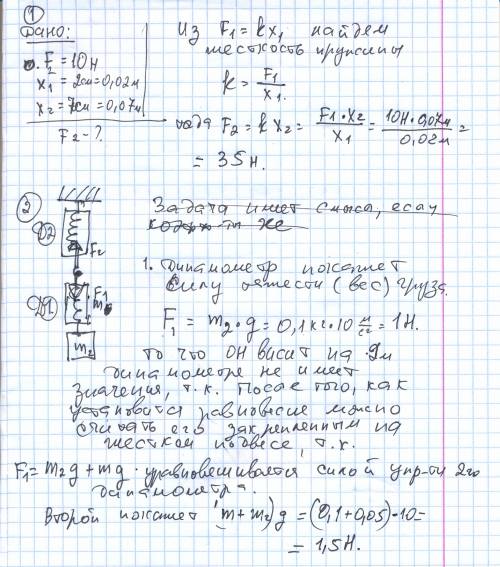 1
Дано:
F = 10н
x1 = 2см = 0,02м
x2 = 7см = 0,07м
F2 - ?
Из F1 = kx1 найдем
жесткость пружины
k = F1/x1.
тогда F2 = kx2 = F1·x2/x1 = 10Н·0,07м/0,02м =
= 35н.
2
Задача имеет смысл, если
же
D2
F2
D1
F1
m
m2
1. Динамометр покажет
силу тяжести (вес) груза.
F1 = m2·g = 0,1кг·10 м/с2 = 1Н.
то что он висит на
динамометре не имеет
значения, т.к. после того, как
установится равновесие можно
считать его закрепленным на
жестком подвесе, т.к.
F1 = m2g + mg уравновешивается силой упр-ти 2го
динамометра.
Второй покажет (m + m2)g = (0,1 + 0,05)·10 =
= 1,5Н.